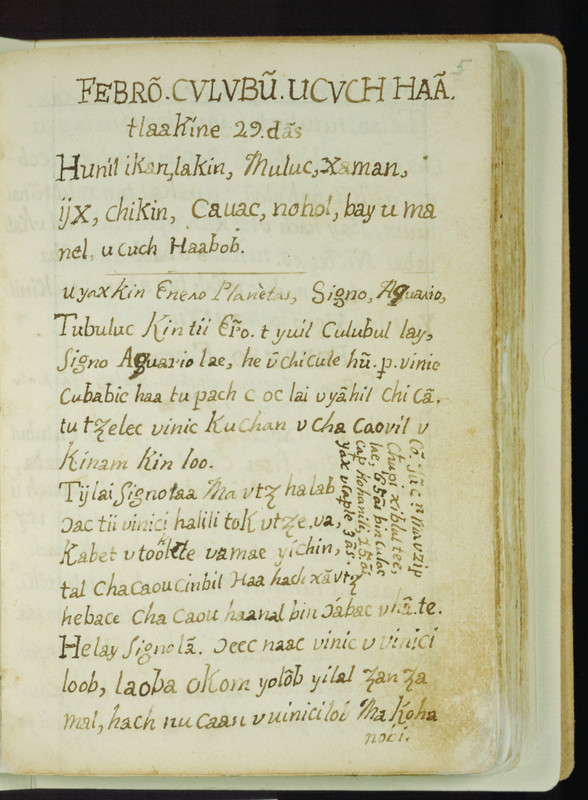 5
FEBRÕ. CVLVBŨ. UCVCH HAÃ.
tlaa Kine 29. dãs
Hunil ikan, lakin, Muluc, Xaman,
ijx, chikin, Cauac, nohol, bay u ma
nel, u cuch Haabob.
u yax kin Enero Planètas, Signo, Aquario,
Tubuluc Kin tii Er̃o. t yuil Culubul lay,
Signo Aquario lae, he ũ chicule hũ. p. vinic
Cubabic haa tu pach c oc lai v yãhil chi cã.
tu tꜫelec vinic Ku chan v cha Caovil v
Kinam Kin loo.
Tij lai Signo taa Ma vtꜫ halab
Ɔac tii vinici halili tok vtꜫe, va,
Kabet v tookte vamae yichin,
tal Cha Caou Cinbil Haa hach xã vtꜫ
hebace Cha Caou haanal bin Ɔábac v hã. te.
He lay Signo lã. Ɔeec naac vinic v vinici
loob, laoba okom yolõb yilal ꜫan ꜫa
mal, hach nu caan v uinicilob Ma Koha
nobi.
Chupi xiblal tee,
lae, 65 ãs bin culac
cap kohanili, 15 ãs
yax v laple 3 ãs.